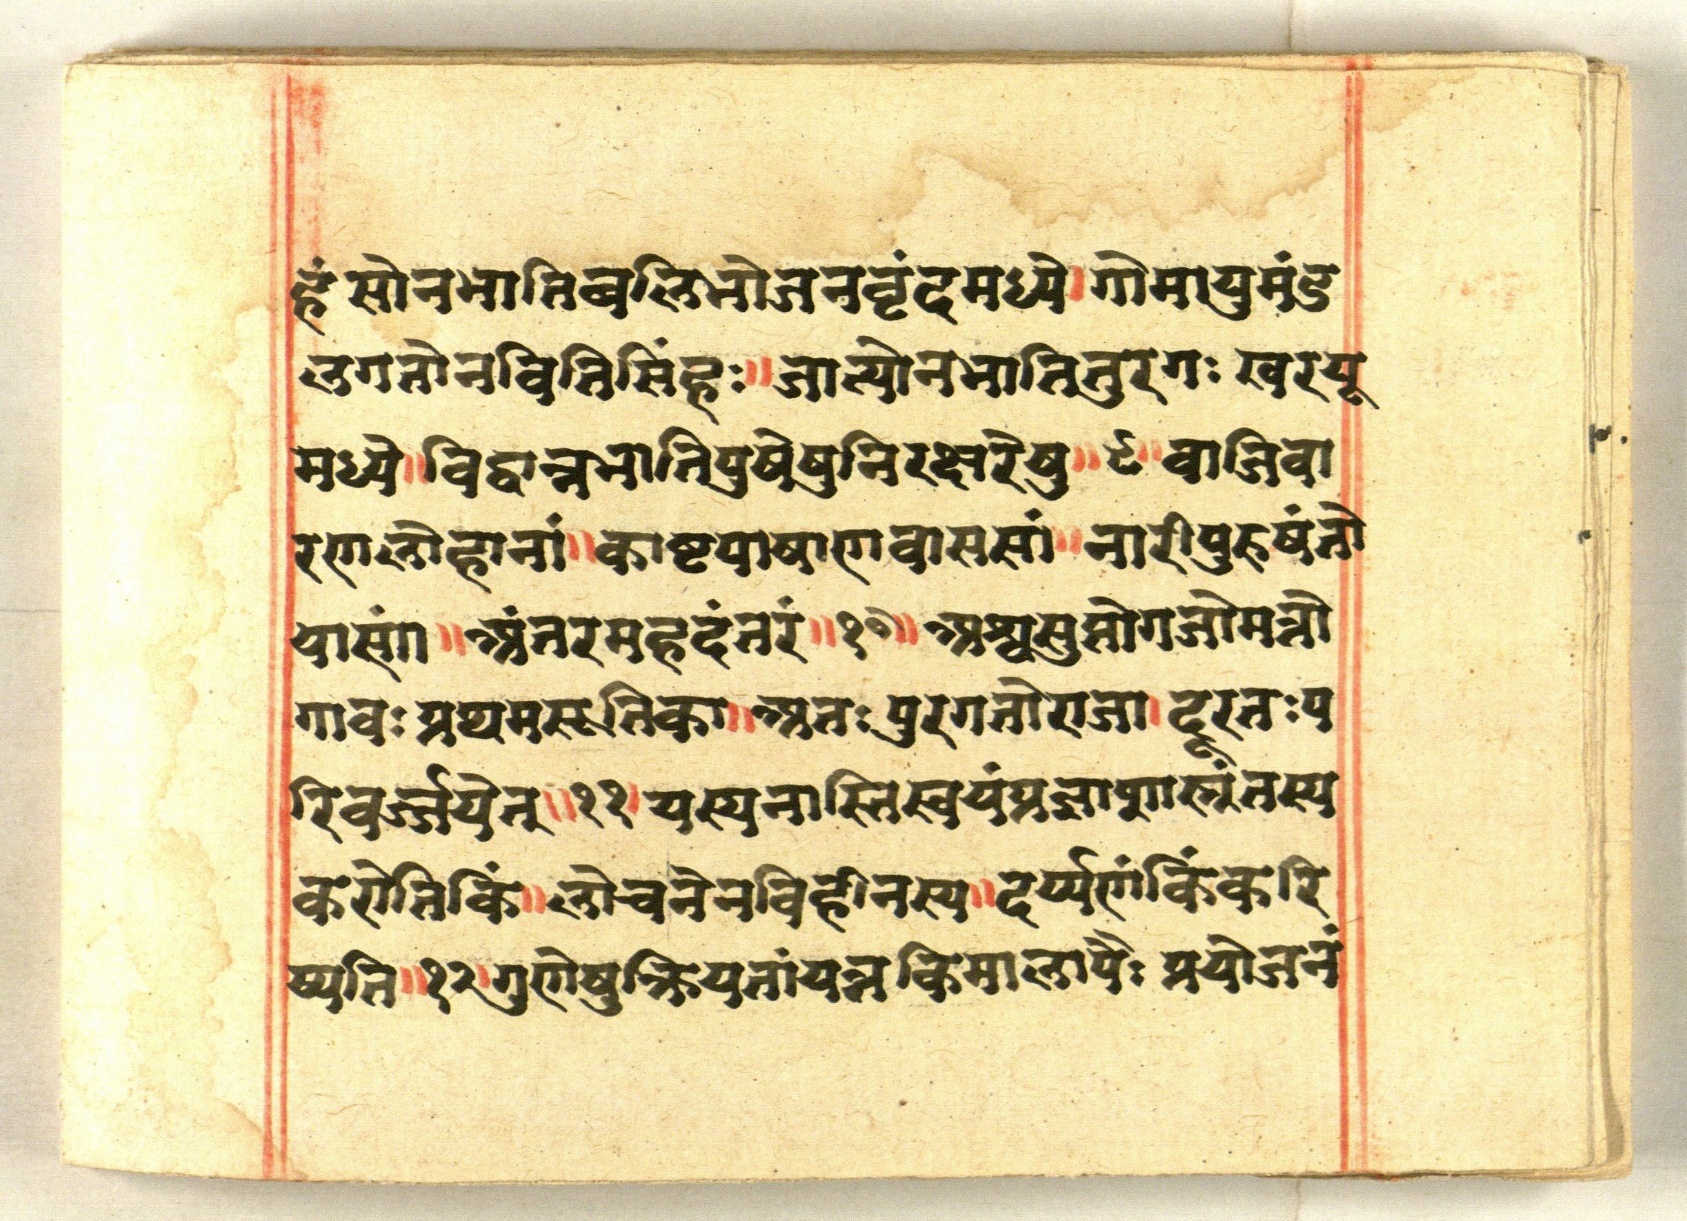 हंसोनभातिबलिभोजनवृंदमध्ये। गोमायुमंड
लगतोनवितिसिंहः॥ जात्योनभातितुरगः खरयू
मध्ये॥ विद्वान्नभातिपुषेषुनिरक्षरेषु॥ ९॥ वाजिवा
रणलोहानां॥ काष्टपाषाणवाससां॥ नारीपुरुषंतो
यासां॥ अंतरमहदंतरं॥ १०॥ अश्वसुप्तोगजोमत्तो
गावः प्रथमसूतिका॥ अतः पुरगतोराजा। दूरतःप
रिवर्ज्जयेत्॥ ११। यस्यनास्तिस्वयंप्रज्ञाशास्त्रंतस्य
करोतिकिं॥ लोचनेनविहीनस्य॥ दर्प्पणंकिंकरि
ष्यति॥ १२। गुणेषुक्रियतांयत्नकिमालापैः प्रयोजनं